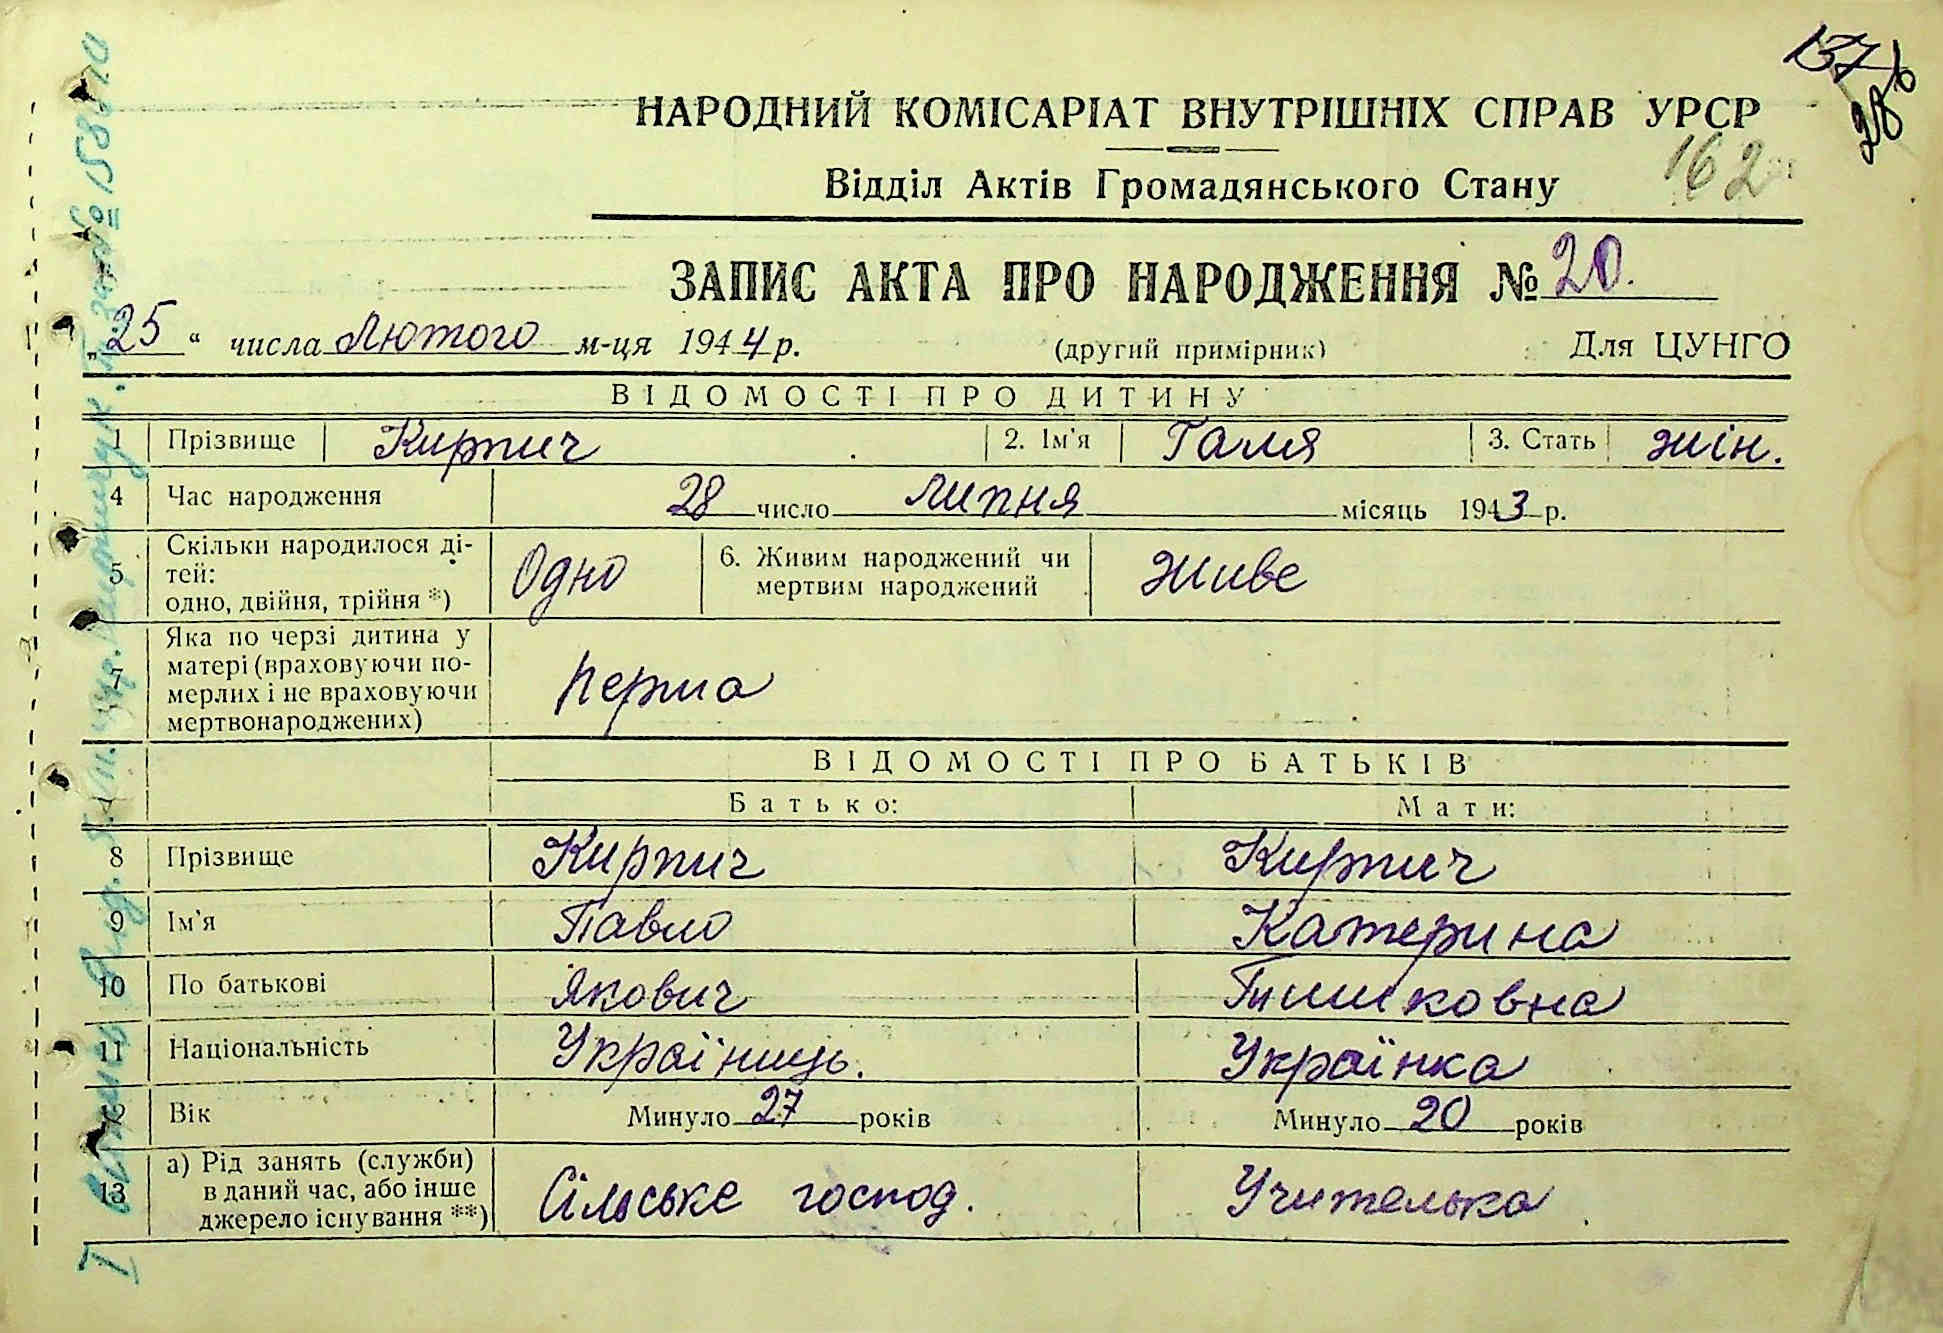 137
28 б
НАРОДНИЙ КОМІСАРІАТ ВНУТРІШНІХ СПРАВ УРСР
Відділ Актів Громадянського Стану 162
ЗАПИС АКТА ПРО НАРОДЖЕННЯ № 20.
„25“ числа Лютого м-ця 1944 р. (другий примірник) Для ЦУНГО
ВІДОМОСТІ ПРО ДИТИНУ
1 Прізвище Кирпич 2. Ім'я Галя 3. Стать жін.
4 Час народження 28 число липня місяць 1943 р.
5 Скільки народилося ді-
тей:
одно, двійня, трійня *) Одно 6. Живим народжений чи
мертвим народжений Живе
7 Яка по черзі дитина у
матері (враховуючи по-
мерлих і не враховуючи
мертвонароджених) перша
ВІДОМОСТІ ПРО БАТЬКІВ
Батько: Мати:
8 Прізвище Кирпич Кирпич
9 Ім'я Павло Катерина
10 По батькові Якович Тимковна
11 Національність Українець. Українка
12 Вік Минуло 27 років Минуло 20 років
13 а) Рід занять (служби)
в даний час, або інше
джерело існування **) Сільське господ. Учителька